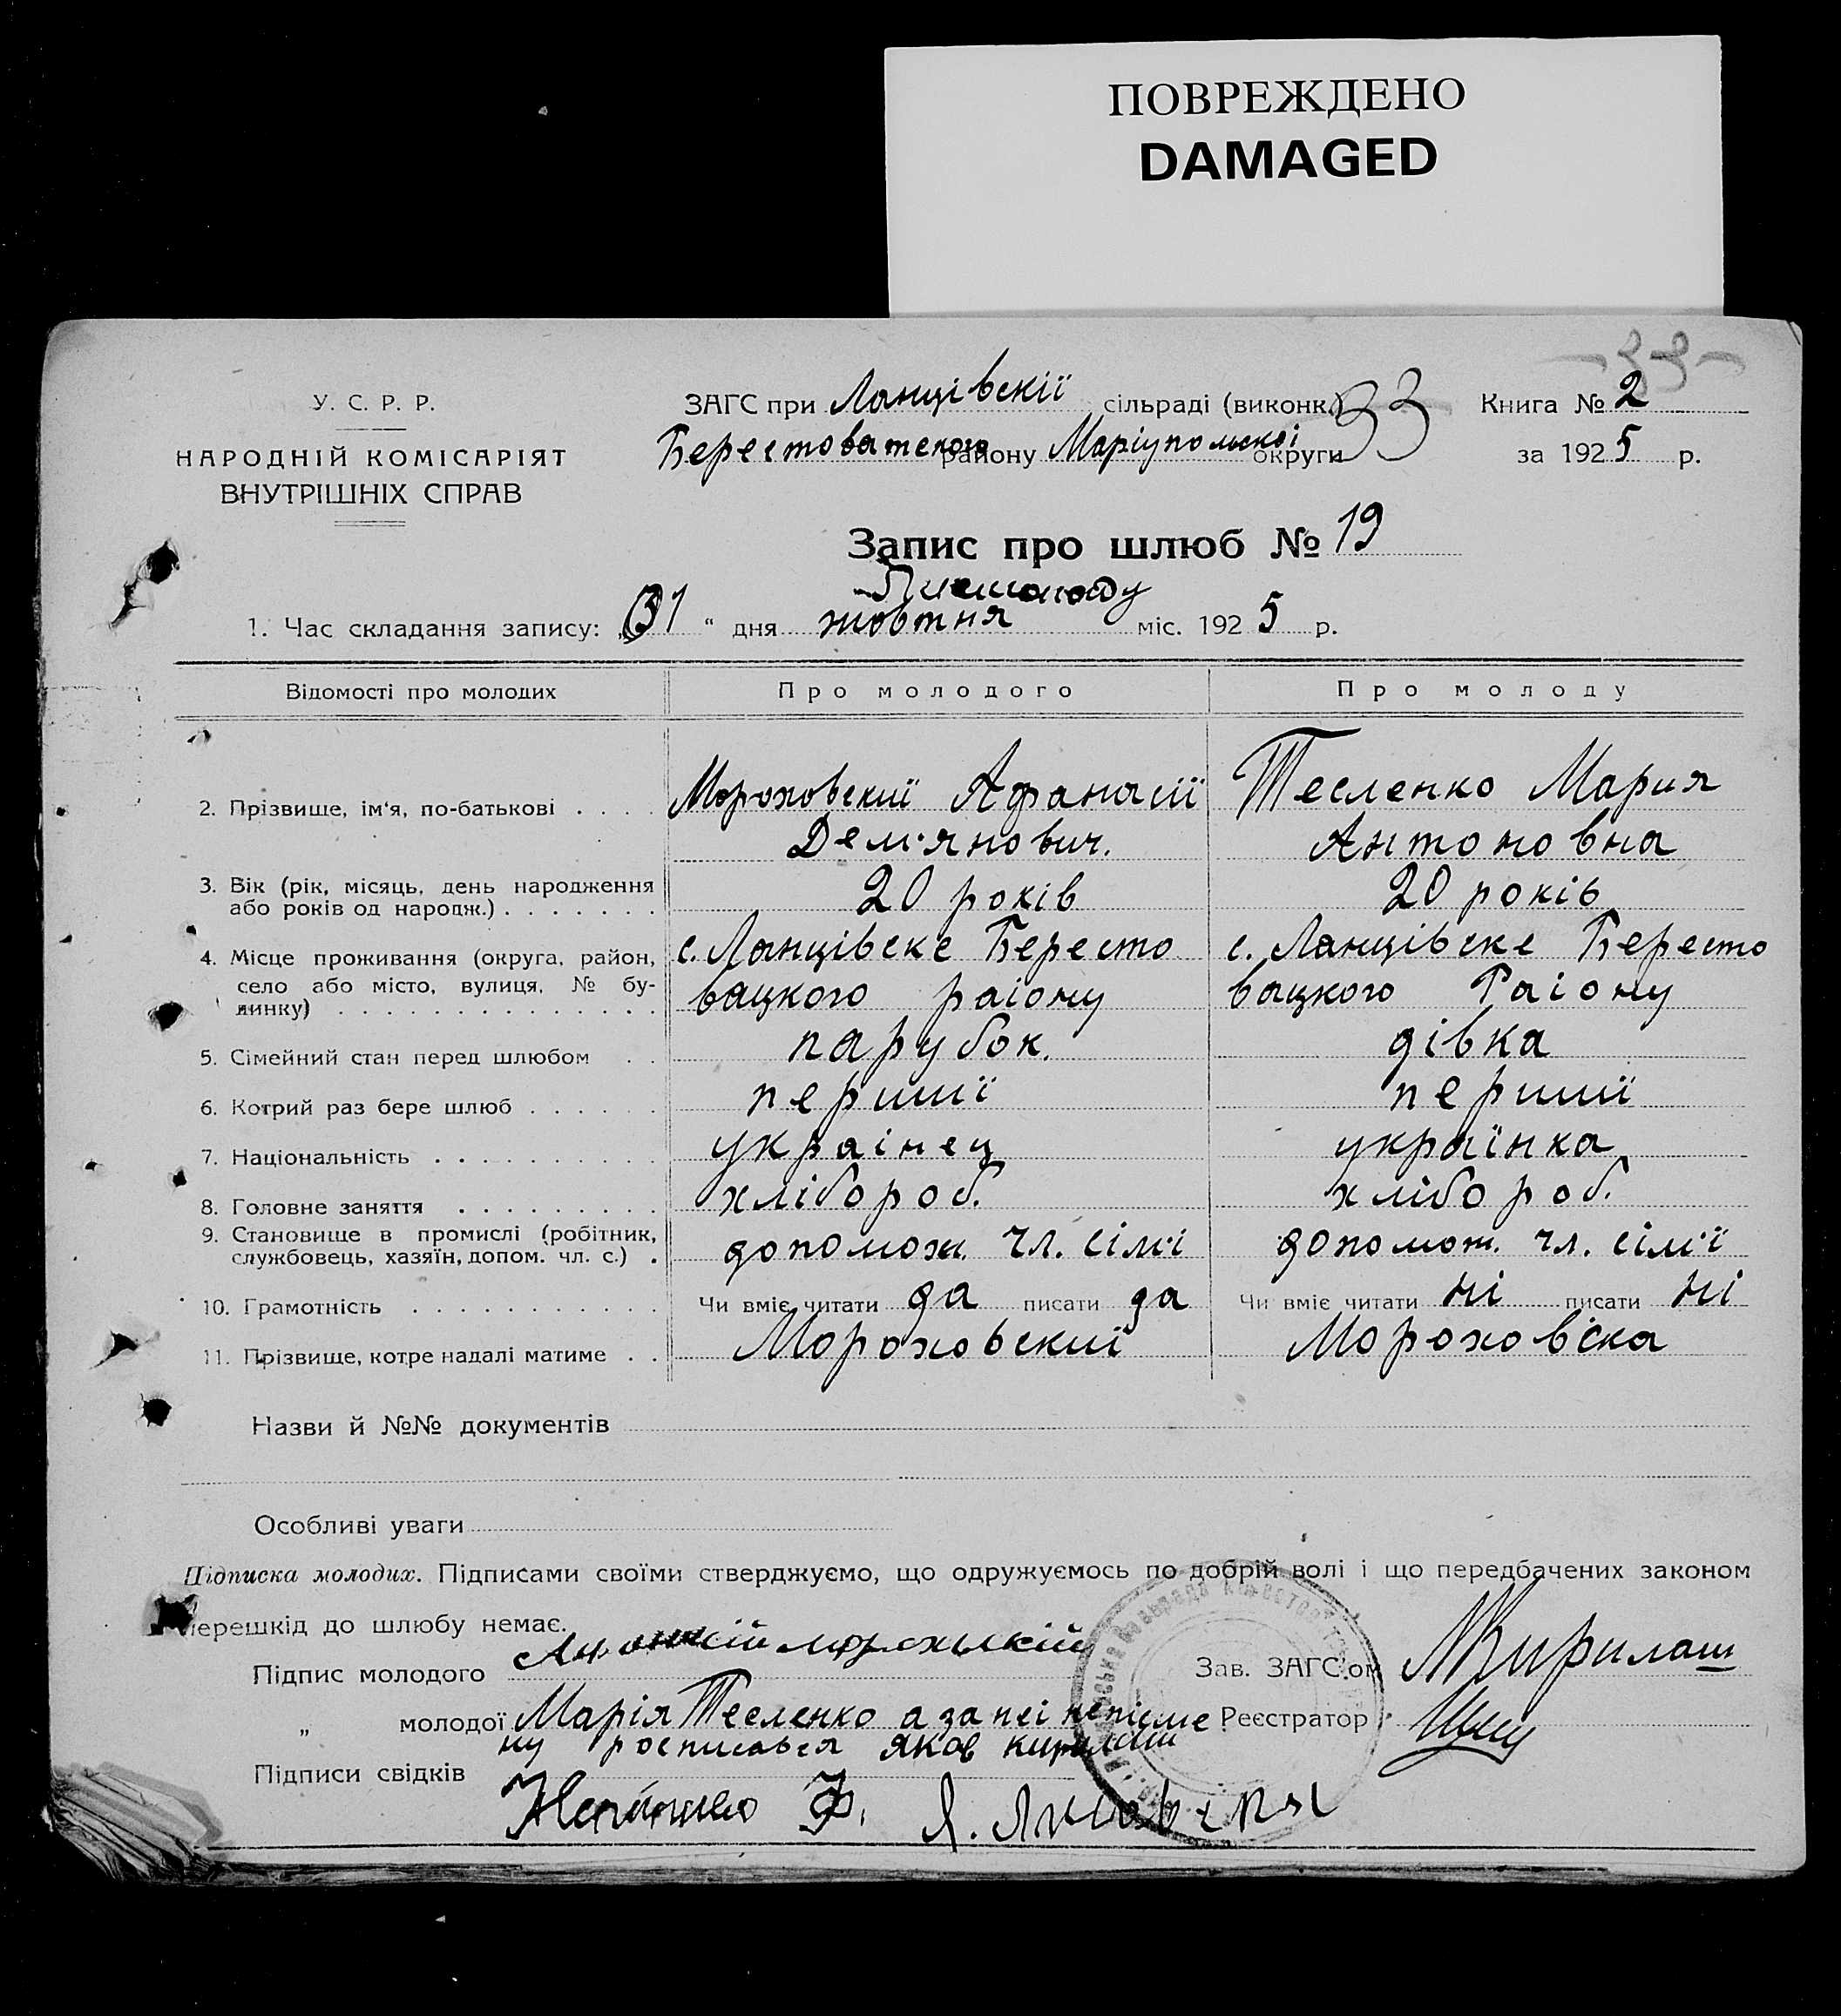 ПОВРЕЖДЕНО
DAMAGED
33
У. С. Р. Р.
НАРОДНІЙ КОМІСАРІЯТ
ВНУТРІШНІХ СПРАВ
ЗАГС при Ланцівскії сільраді (виконк.) 33
Берестоватского району Маріупольскоі округи
Книга № 2
за 1925 р.
Запис про шлюб № 19
Листопаду
1. Час складання запису: „31“ дня жовтня міс. 1925 р.
Відомості про молодих Про молодого Про молоду
2. Прізвище, ім'я, по-батькові . . . . Мороховский Афанасії Тесленко Мария
Дем'янович. Антоновна
3. Вік (рік, місяць, день народження
або років од народж.) . . . . . . . 20 років 20 років
4. Місце проживання (округа, район, с. Ланцівске Бересто с. Ланцівске Бересто
село або місто, вулиця, № бу-
динку) . . . . . . . . . . . . . . вацкого раіону вацкого Раіону
5. Сімейний стан перед шлюбом . . парубок. дівка
6. Котрий раз бере шлюб . . . . . . перший перший
7. Національність . . . . . . . . . . украінец украïнка
8. Головне заняття . . . . . . . . . хлібороб. хлібороб.
9. Становище в промислі (робітник,
службовець, хазяїн, допом. чл. с.) . допомож. чл. сімʼі допомож. чл. сімʼї
10. Грамотність . . . . . . . . . . . Чи вміє читати да писати да Чи вміє читати ні писати ні
11. Прізвище, котре надалі матиме . . Мороховский Мороховска
Назви й №№ документів
Особливі уваги
Підписка молодих. Підписами своїми стверджуємо, що одружуємось по добрій волі і що передбачених законом
перешкід до шлюбу немає.
Підпис молодого Зав. ЗАГС'ом Кирилаш
„ молодої Марія Тесленко а за неі непісме Реєстратор
ну росписався яков кирилаш
Підписи свідків